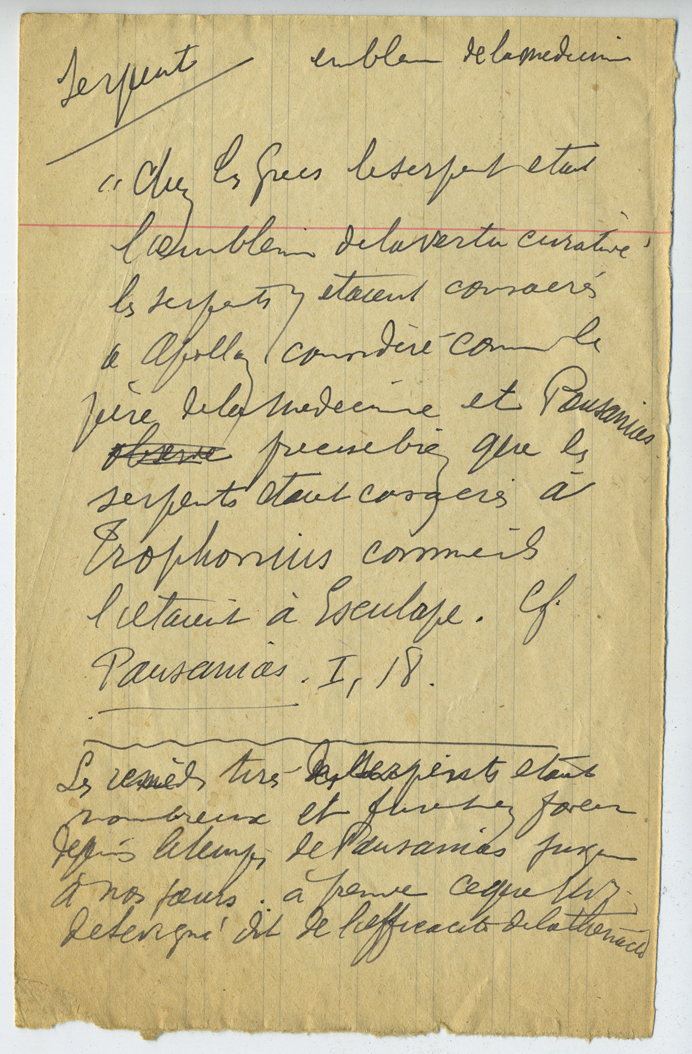 Serpents emblem de la medecine
"Chez les Grecs le serpent etait
l'emblem de la vertu curative
les serpents y etaient consacrés
a Apollon considéré comme le
père de la medecine et Pausanias
observe precise bien que les
serpents etaient consacrés à
Trophonius comme ils
l'etaient à Esculape. Cf.
Pausanias. I, 18.
Les remèdes tirés des serpents etaient
nombreux et furent en faveur
depuis le temps de Pausanias jusque
à nos jours. à preuve ce que Mme
de Sevigné dit de l'efficacité de la theriacle